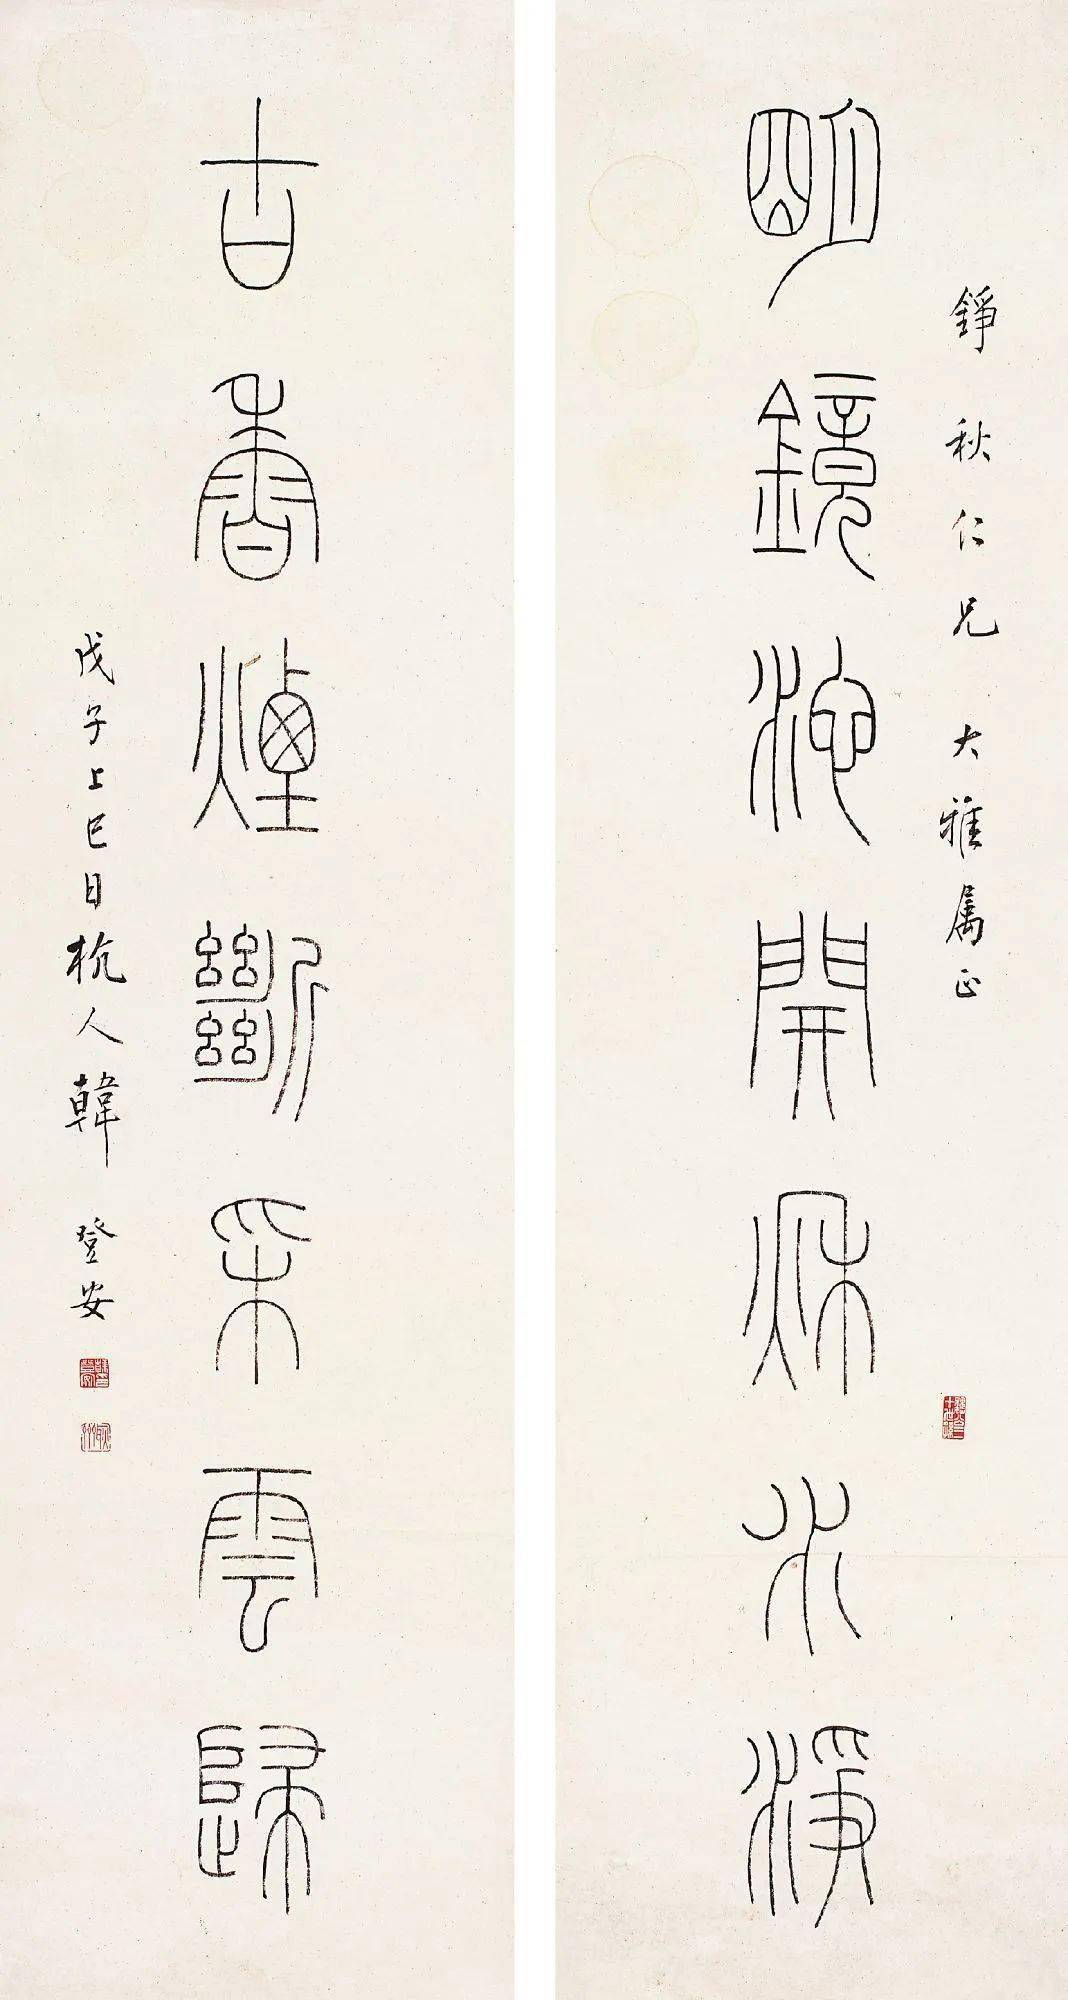 錚秋仁兄大雅属正
明鏡池開秋水淨
古香煙斷采雲歸
戊子上巳日杭人韓登安